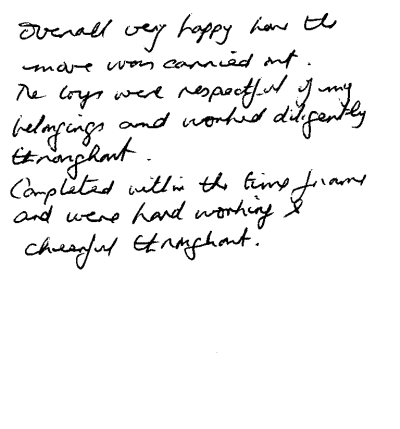 Overall very happy how the
move was carried out.
The boys were respectful of my
belongings and worked diligently
throughout.
Completed within the time frame
and were hard working &
cheerful throughout.